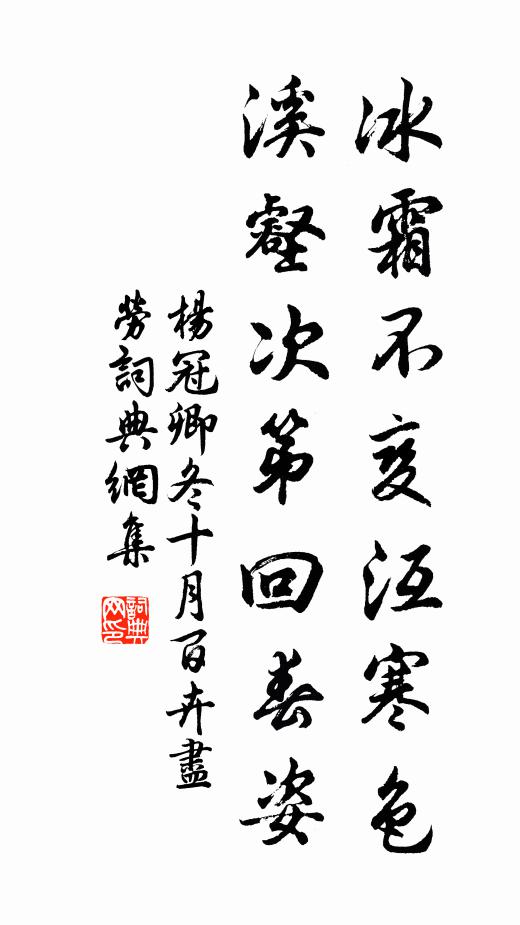 冰霜不变沍寒色
溪壑次第回春姿
楊冠卿冬十月百卉盡
勞詞典網集
詞典网印